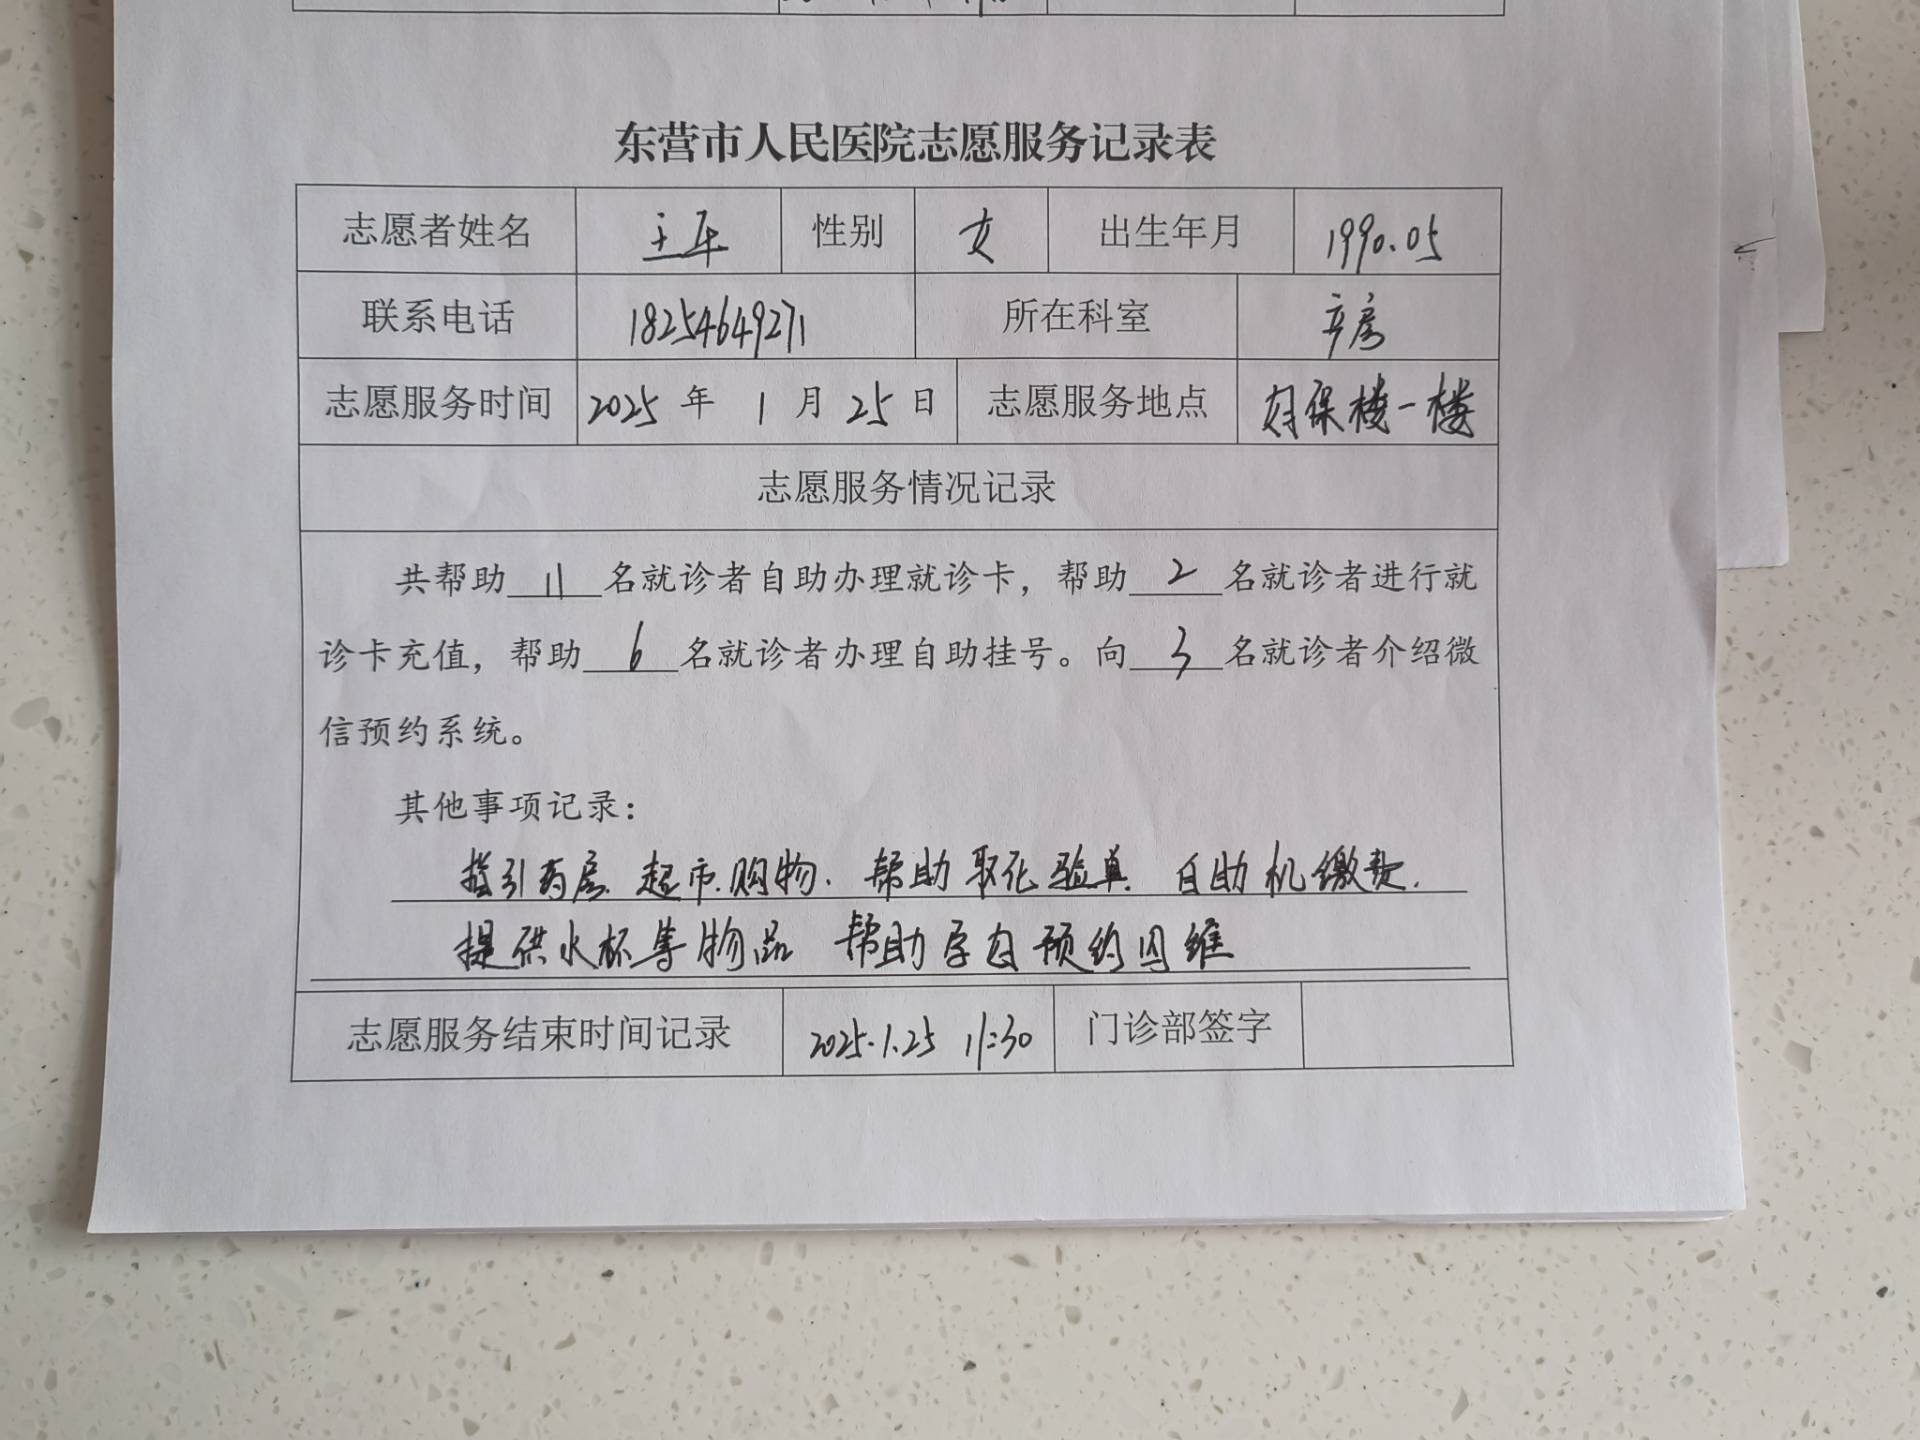 东营市人民医院志愿服务记录表
志愿者姓名 王军 性别 女 出生年月 1990.05
联系电话 18254649271 所在科室 产房
志愿服务时间 2025 年 1 月 25 日 志愿服务地点 妇保楼一楼
志愿服务情况记录
共帮助 11 名就诊者自助办理就诊卡，帮助 2 名就诊者进行就
诊卡充值，帮助 6 名就诊者办理自助挂号。向 3 名就诊者介绍微
信预约系统。
其他事项记录：
指引药房、超市、购物、帮助取化验单、自助机缴费、
提供水杯等物品 帮助孕妇预约四维
志愿服务结束时间记录 2025.1.25 11:30 门诊部签字